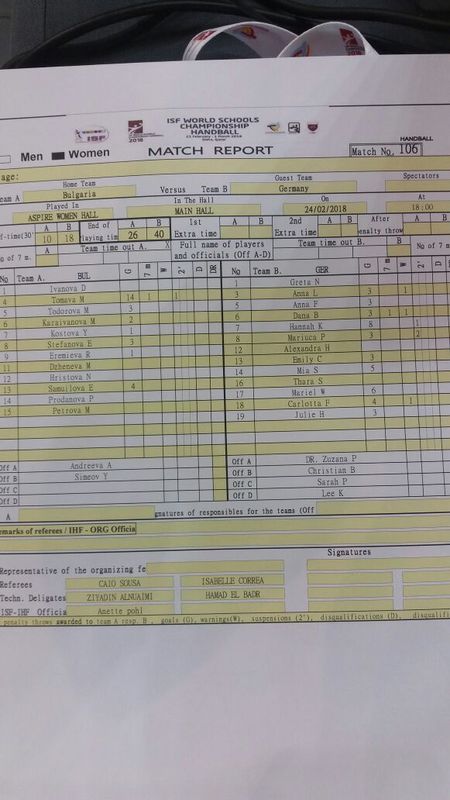 ISF WORLD SCHOOLS
CHAMPIONSHIP
HANDBALL
2018
ISF
HANDBALL
Men Women MATCH REPORT Match No. 106
age:
Home Team Guest Team Spectators
eam A Bulgaria Versus Team B Germany
Played In In The Hall On At
ASPIRE WOMEN HALL MAIN HALL 24/02/2018 18:00
f-time(30' A B End of playing time A B 1st Extra time A B 2nd Extra time A B After penalty throw A B
10 18 26 40
No of 7 m. A Team time out A. X Full name of players and officials (Off A-D) Team time out B. B No of 7 m.
No Team A. BUL G 7 m W 2' D DR No Team B. GER G 7 m W 2' D
1 Ivanova D 1 Greta N
4 Tomava M 14 1 1 3 Anna L 3 1
5 Todorova M 3 5 Anna F 3
6 Karaivanova M 2 6 Dana B 3 1 1
7 Kostova Y 1 7 Hannah K 8 1
8 Stefanova E 3 8 Mariuca P 3 2
9 Eremieva R 1 12 Alexandra H
11 Dzheneva M 13 Emily C 3
12 Hristova N 14 Mia S 5
13 Samuilova E 4 16 Thara S
14 Prodanova P 17 Mariel W 6
15 Petrova M 18 Carlotta F 4 1
19 Julie H 3
Off A Andreeva A Off A DR. Zuzana P
Off B Simeov Y Off B Christian B
Off C Off C Sarah P
Off D Off D Lee K
A gnatures of responsibles for the teams (Off
emarks of referees / IHF - ORG Officia
Signatures
Representative of the organizing fe
Referees CAIO SOUSA ISABELLE CORREA
Techn. Deligates ZIYADIN ALNUAIMI HAMAD EL BADR
ISF-IHF Officia Anette pohl
penalty throws awarded to team A resp. B , goals (G), warnings(W), suspensions (2'), disqualifications (D), disqualifi